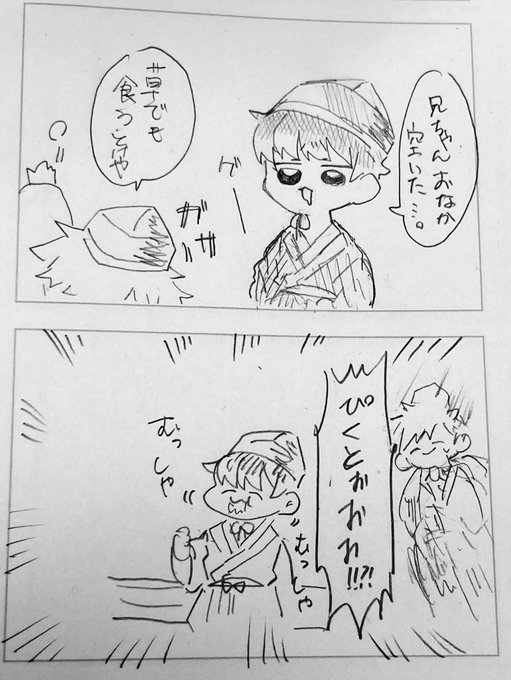 兄ちゃん おなか
空いた…。
グー
草でも
食うとけや
ガサ
ぴくとがおお!!?!
むっしゃ
むっしゃ